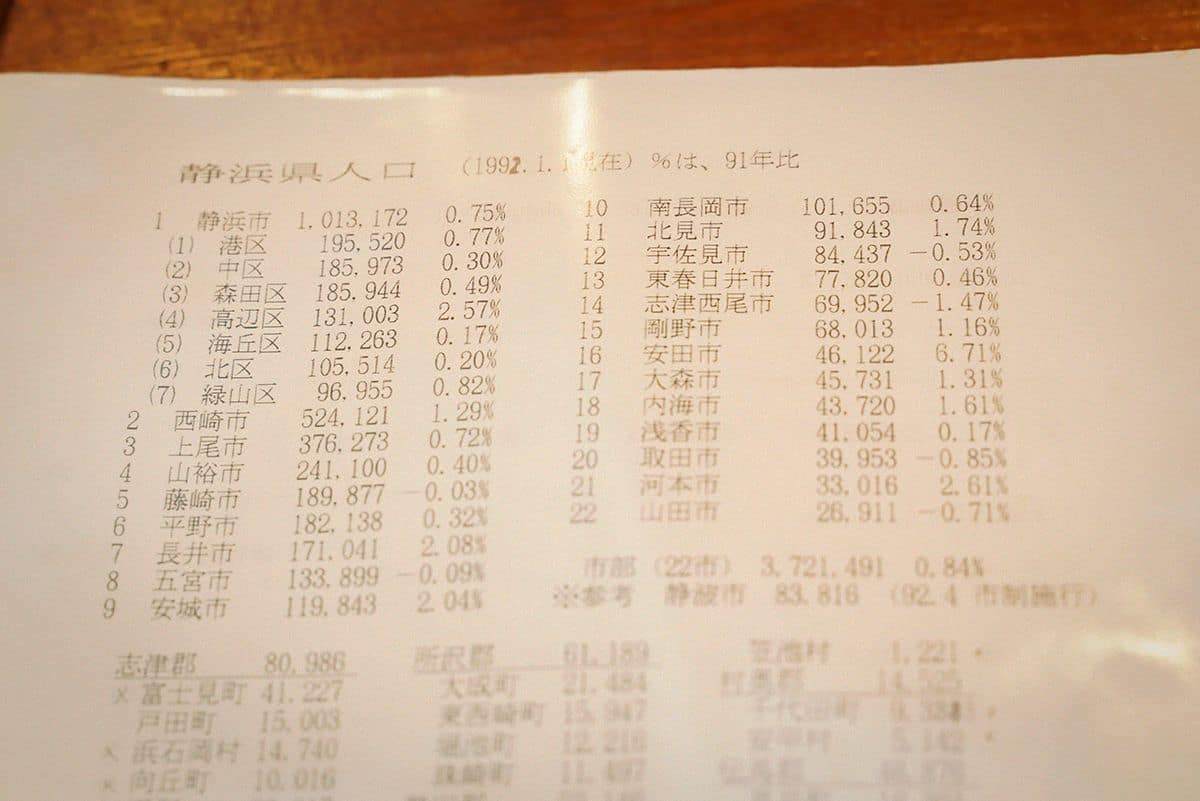 静浜県人口 (1992.1.1現在) %は、91年比
1 静浜市 1,013,172 0.75%
(1) 港区 195,520 0.77%
(2) 中区 185,973 0.30%
(3) 森田区 185,944 0.49%
(4) 高辺区 131,003 2.57%
(5) 海丘区 112,263 0.17%
(6) 北区 105,514 0.20%
(7) 緑山区 96,955 0.82%
2 西崎市 524,121 1.29%
3 上尾市 376,273 0.72%
4 山裕市 241,100 0.40%
5 藤崎市 189,877 -0.03%
6 平野市 182,138 0.32%
7 長井市 171,041 2.08%
8 五宮市 133,899 -0.09%
9 安城市 119,843 2.04%
10 南長岡市 101,655 0.64%
11 北見市 91,843 1.74%
12 宇佐見市 84,437 -0.53%
13 東春日井市 77,820 0.46%
14 志津西尾市 69,952 -1.47%
15 剛野市 68,013 1.16%
16 安田市 46,122 6.71%
17 大森市 45,731 1.31%
18 内海市 43,720 1.61%
19 浅香市 41,054 0.17%
20 取田市 39,953 -0.85%
21 河本市 33,016 2.61%
22 山田市 26,911 -0.71%
市部 (22市) 3,721,491 0.84%
※参考 静波市 83,816 (92.4 市制施行)
志津郡 80,986
×富士見町 41,227
戸田町 15,003
×浜石岡村 14,740
×向丘町 10,016
所沢郡 61,189
大成町 21,484
東西崎町 15,947
堀池町 12,216
珠崎町 11,497
笠池村 1,221
14,525
千代田町
5,142